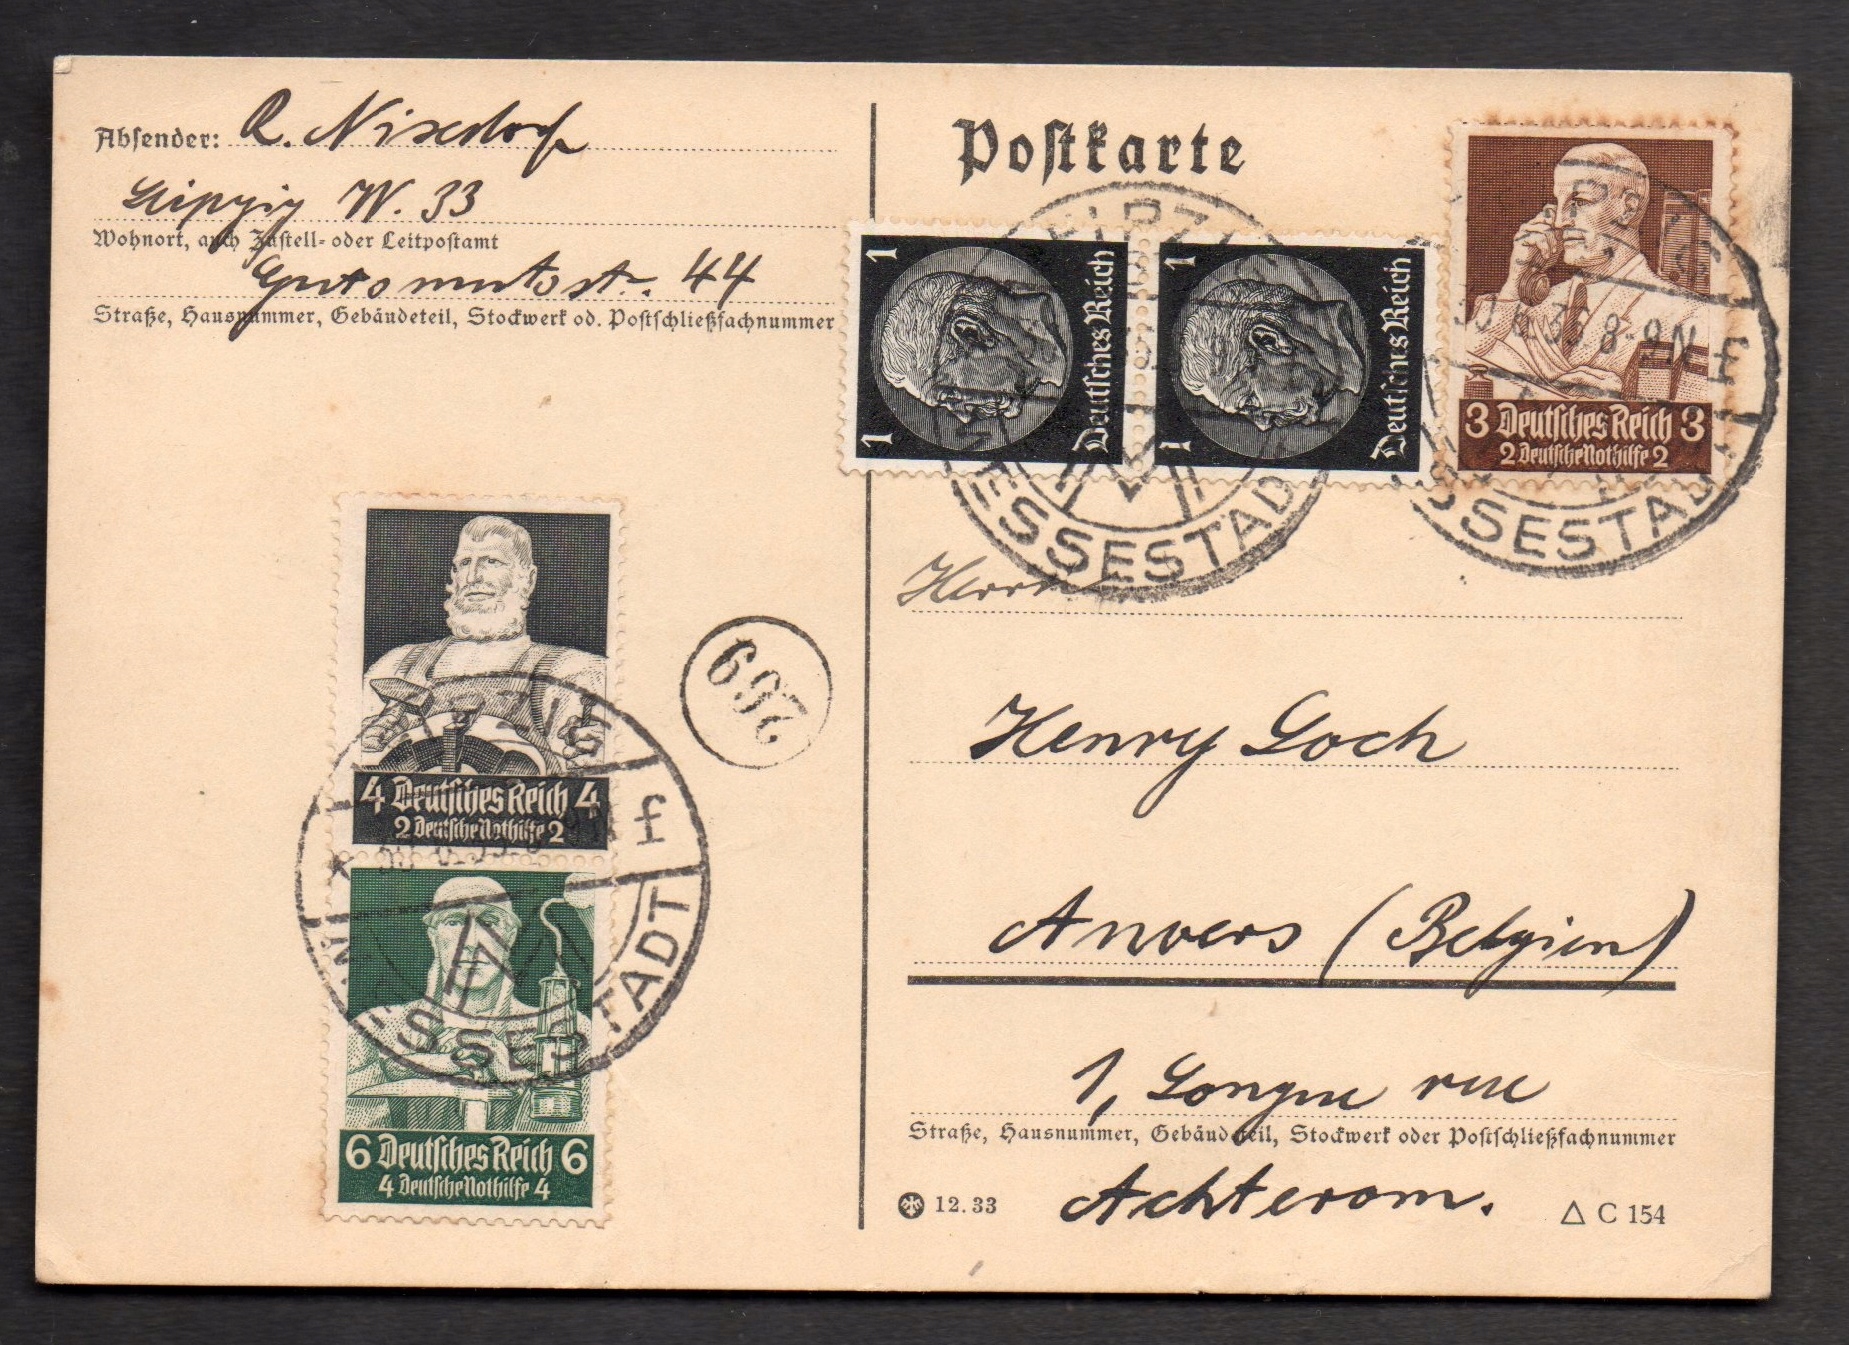 Absender: R. Nixdorf
Leipzig W. 33
Wohnort, auch Zustell- oder Leitpostamt
Gutsmutsstr. 44
Straße, Hausnummer, Gebäudeteil, Stockwerk od. Postschließfachnummer
Postkarte
1 1 Deutsches Reich
1 1 Deutsches Reich
3 Deutsches Reich 3
2 Deutsche Nothilfe 2
LEIPZIG
MESSESTADT
30.6.35.8-9N f
ESSESTAD
SSESTAD
4 Deutsches Reich 4
2 Deutsche Nothilfe 2
6 Deutsches Reich 6
4 Deutsche Nothilfe 4
LEIPZIG
f
MESSESTADT
269
Herrn
Henry Loch
Anvers (Belgien)
1, Longue rue
Straße, Hausnummer, Gebäudeteil, Stockwerk oder Postschließfachnummer
Achterom.
12. 33
△ C 154